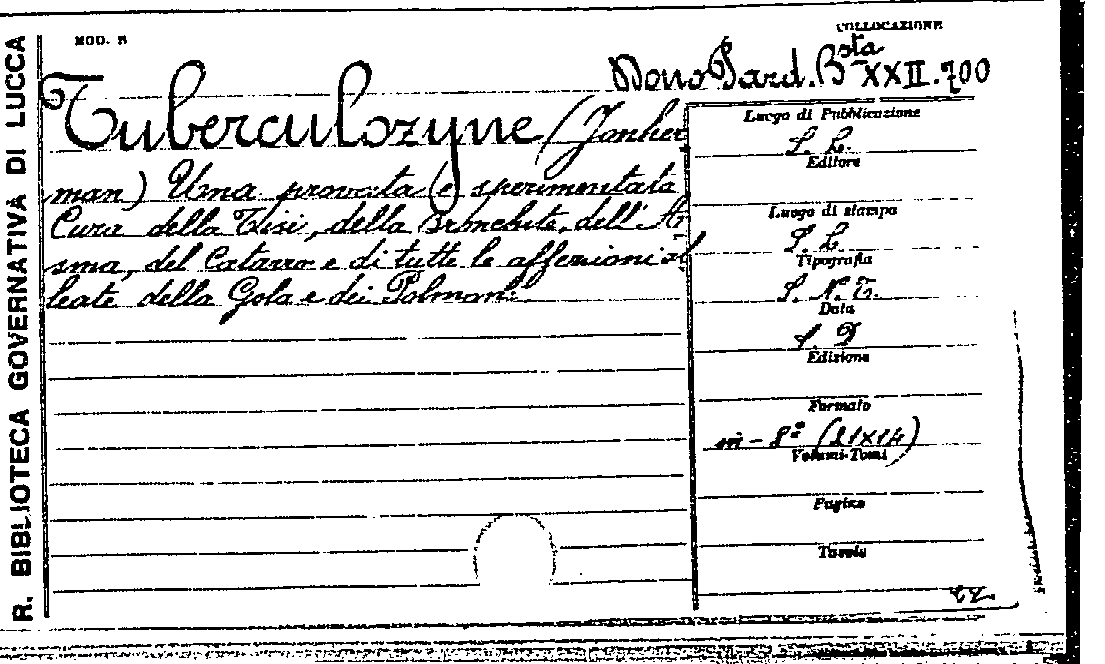 R. BIBLIOTECA GOVERNATIVA DI LUCCA
MOD. B
COLLOCAZIONE
Dono Pard. Bsta XXII.700
Tuberculozyne (Jonker
man) Una provata e sperimentata
Cura della Tisi, della Bronchite, dell'A
sma, del Catarro e di tutte le affezioni al
leate della Gola e dei Polmoni.
Luogo di Pubblicazione
S. L.
Editore
Luogo di stampa
S. L.
Tipografia
S. N. T.
Data
S. D
Edizione
Formato
in-8º (21x14)
Volumi-Tomi
Pagine
Tavole